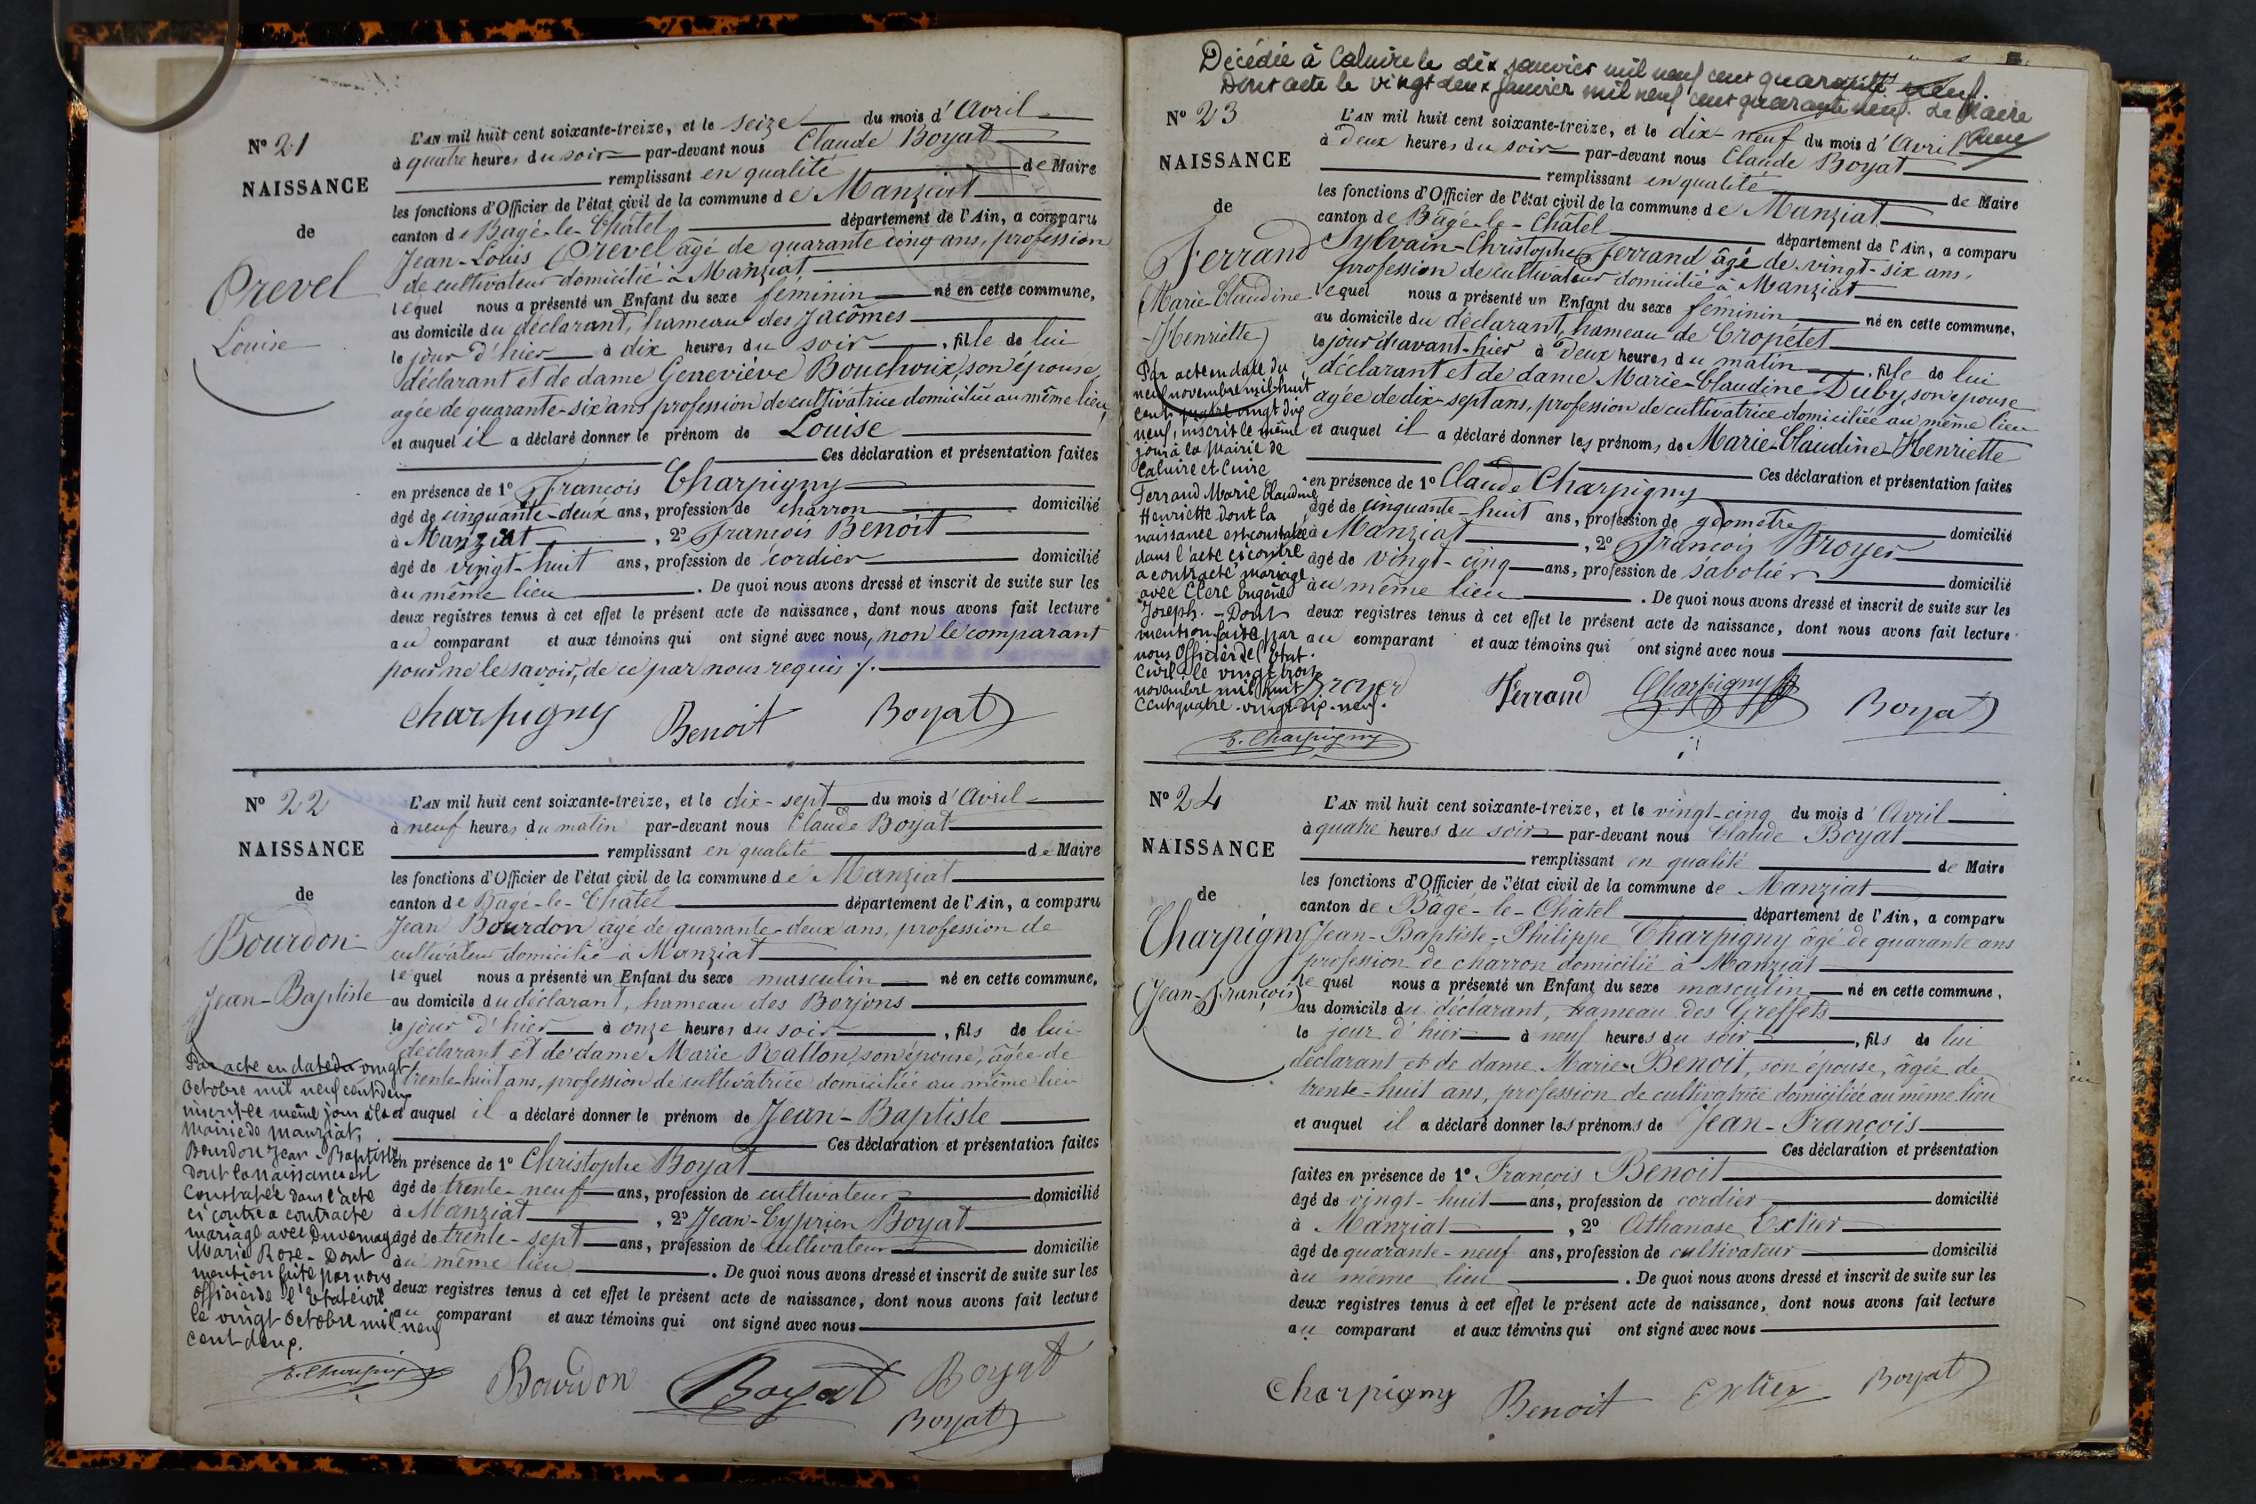 N° 21
NAISSANCE
de
Prevel
Louise
L'AN mil huit cent soixante-treize, et le seize du mois d'Avril
à quatre heures du soir par-devant nous Claude Boyat
remplissant en qualité de Maire
les fonctions d'Officier de l'état civil de la commune de Manziat
canton de Bagé-le-Châtel département de l'Ain, a comparu
Jean-Louis Prevel âgé de quarante cinq ans, profession
de cultivateur domicilié à Manziat
lequel nous a présenté un Enfant du sexe féminin né en cette commune,
au domicile du déclarant, hameau des Jacômes
le jour d'hier à dix heures du soir, fille de lui
déclarant et de dame Geneviève Bouchoux, son épouse,
agée de quarante-six ans profession de cultivatrice domiciliée au même lieu,
et auquel il a déclaré donner le prénom de Louise
Ces déclaration et présentation faites
en présence de 1° François Charpigny
âgé de cinquante-deux ans, profession de charron domicilié
à Manziat, 2° François Benoit
âgé de vingt-huit ans, profession de cordier domicilié
au même lieu. De quoi nous avons dressé et inscrit de suite sur les
deux registres tenus à cet effet le présent acte de naissance, dont nous avons fait lecture
au comparant et aux témoins qui ont signé avec nous, non le comparant
pour ne le savoir, de ce par nous requis /.
Charpigny Benoit Boyat
N° 22
NAISSANCE
de
Bourdon
Jean-Baptiste
Par acte en date du vingt
octobre mil neuf cent deux
inscrit le même jour à la
Mairie de Manziat,
Bourdon Jean-Baptiste
dont la naissance est
constatée dans l'acte
ci contre a contracté
mariage avec Duvernay
Marie Rose - Dont
mention faite par nous
officier de l'Etat civil
le vingt octobre mil neuf
cent deux.
E. Charpigny
L'AN mil huit cent soixante-treize, et le dix-sept du mois d'Avril
à neuf heures du matin par-devant nous Claude Boyat
remplissant en qualité de Maire
les fonctions d'Officier de l'état civil de la commune de Manziat
canton de Bagé-le-Châtel département de l'Ain, a comparu
Jean Bourdon âgé de quarante-deux ans, profession de
cultivateur domicilié à Manziat
lequel nous a présenté un Enfant du sexe masculin né en cette commune,
au domicile du déclarant, hameau des Borjons
le jour d'hier à onze heures du soir, fils de lui
déclarant et de dame Marie Ratton, son épouse, âgée de
trente-huit ans, profession de cultivatrice domiciliée au même lieu
et auquel il a déclaré donner le prénom de Jean-Baptiste
Ces déclaration et présentation faites
en présence de 1° Christophe Boyat
âgé de trente-neuf ans, profession de cultivateur domicilié
à Manziat, 2° Jean-Cyprien Boyat
âgé de trente-sept ans, profession de cultivateur domicilié
au même lieu. De quoi nous avons dressé et inscrit de suite sur les
deux registres tenus à cet effet le présent acte de naissance, dont nous avons fait lecture
au comparant et aux témoins qui ont signé avec nous
Bourdon Boyat Boyat
Boyat
Décédée à Caluire le dix janvier mil neuf cent quarante neuf.
Dont acte le vingt deux janvier mil neuf cent quarante neuf. Le Maire
N° 23
NAISSANCE
de
Ferrand
Marie-Claudine
-Henriette
Par acte en date du
neuf novembre mil huit
cent quatre vingt dix
neuf, inscrit le même
jour à la Mairie de
Caluire et Cuire
Ferrand Marie Claudine
Henriette dont la
naissance est constatée
dans l'acte ci contre
a contracté mariage
avec Clerc Eugène
Joseph. - Dont
mention faite par
nous Officier de l'Etat
Civil le vingt trois
novembre mil huit
cent quatre-vingt-dix-neuf.
E. Charpigny
L'AN mil huit cent soixante-treize, et le dix-neuf du mois d'Avril
à deux heures du soir par-devant nous Claude Boyat
remplissant en qualité de Maire
les fonctions d'Officier de l'état civil de la commune de Manziat
canton de Bâgé-le-Châtel département de l'Ain, a comparu
Sylvain-Christophe Ferrand âgé de vingt-six ans,
profession de cultivateur domicilié à Manziat
lequel nous a présenté un Enfant du sexe féminin né en cette commune,
au domicile du déclarant, hameau de Cropétet
le jour d'avant-hier à deux heures du matin, fille de lui
déclarant et de dame Marie-Claudine Duby, son épouse
agée de dix-sept ans, profession de cultivatrice domiciliée au même lieu
et auquel il a déclaré donner les prénoms de Marie-Claudine-Henriette
Ces déclaration et présentation faites
en présence de 1° Claude Charpigny
âgé de cinquante-huit ans, profession de géomètre domicilié
à Manziat, 2° François Broyer
âgé de vingt-cinq ans, profession de sabotier domicilié
au même lieu. De quoi nous avons dressé et inscrit de suite sur les
deux registres tenus à cet effet le présent acte de naissance, dont nous avons fait lecture
au comparant et aux témoins qui ont signé avec nous
Broyer Ferrand Charpigny Boyat
N° 24
NAISSANCE
de
Charpigny
Jean-François
L'AN mil huit cent soixante-treize, et le vingt-cinq du mois d'Avril
à quatre heures du soir par-devant nous Claude Boyat
remplissant en qualité de Maire
les fonctions d'Officier de l'état civil de la commune de Manziat
canton de Bâgé-le-Châtel département de l'Ain, a comparu
Jean-Baptiste-Philippe Charpigny âgé de quarante ans
profession de charron domicilié à Manziat
lequel nous a présenté un Enfant du sexe masculin né en cette commune,
au domicile du déclarant, hameau des Greffets
le jour d'hier à neuf heures du soir, fils de lui
déclarant et de dame Marie Benoit, son épouse, âgée de
trente-huit ans, profession de cultivatrice domiciliée au même lieu
et auquel il a déclaré donner les prénoms de Jean-François
Ces déclaration et présentation
faites en présence de 1° François Benoit
âgé de vingt-huit ans, profession de cordier domicilié
à Manziat, 2° Athanase Extier
âgé de quarante-neuf ans, profession de cultivateur domicilié
au même lieu. De quoi nous avons dressé et inscrit de suite sur les
deux registres tenus à cet effet le présent acte de naissance, dont nous avons fait lecture
au comparant et aux témoins qui ont signé avec nous
Charpigny Benoit Extier Boyat